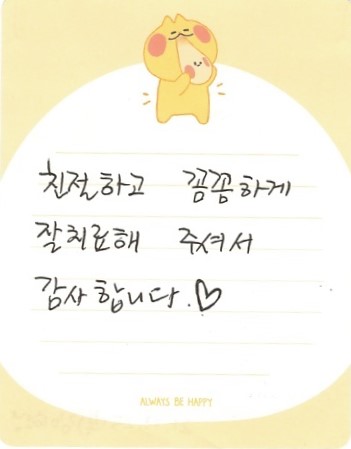 친절하고 꼼꼼하게
잘치료해 주셔서
감사합니다.♡
ALWAYS BE HAPPY